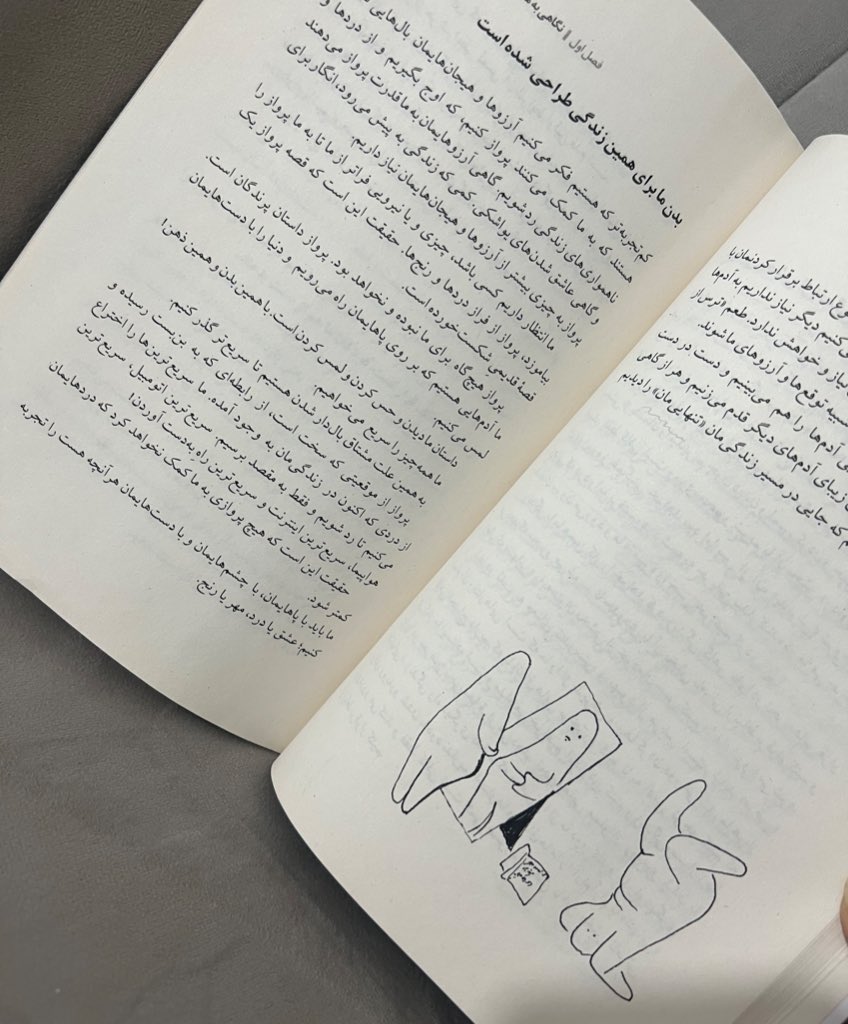 فصل اول | نگاهی به
بدن ما برای همین زندگی طراحی شده است
کم‌تجربه‌تر که هستیم فکر می‌کنیم آرزوها و هیجان‌هایمان بال‌هایی
هستند که به ما کمک می‌کنند پرواز کنیم، که اوج بگیریم و از دردها و
ناهمواری‌های زندگی رد شویم. گاهی آرزوهایمان به ما قدرت پرواز می‌دهند
و گاهی عاشق شدن‌های یواشکی. کمی که زندگی به پیش می‌رود، انگار برای
پرواز به چیزی بیشتر از آرزوها و هیجان‌هایمان نیاز داریم.
ما انتظار داریم کسی باشد، چیزی و یا نیرویی فراتر از ما تا به ما پرواز را
بیاموزد، پرواز از فراز دردها و رنج‌ها. حقیقت این است که قصه پرواز یک
قصهٔ قدیمی شکست‌خورده است.
پرواز هیچ گاه برای ما نبوده و نخواهد بود. پرواز داستان پرندگان است.
ما آدم‌هایی هستیم که بر روی پاهایمان راه می‌رویم و دنیا را با دست‌هایمان
لمس می‌کنیم.
داستان ما دیدن و حس کردن و لمس کردن است. با همین بدن و همین ذهن!
ما همه‌چیز را سریع می‌خواهیم.
به همین علت مشتاق بال‌دار شدن هستیم تا سریع‌تر گذر کنیم.
پرواز از موقعیتی که سخت است، از رابطه‌ای که به بن‌بست رسیده و
از دردی که اکنون در زندگی‌مان به وجود آمده. ما سریع‌ترین‌ها را اختراع
می‌کنیم تا رد شویم و فقط به مقصد برسیم. سریع‌ترین اتومبیل، سریع‌ترین
هواپیما، سریع‌ترین اینترنت و سریع‌ترین راهِ به‌دست آوردن!
حقیقت این است که هیچ پروازی به ما کمک نخواهد کرد که دردهایمان
کمتر شود.
ما باید با پاهایمان، با چشم‌هایمان و با دست‌هایمان هر آنچه هست را تجربه
کنیم؛ عشق یا درد، مهر یا رنج.
ارتباط برقرار کردنمان با
می‌کنیم دیگر نیاز نداریم به آدم‌ها
نیاز و خواهش ندارد. طعم «ترس از
توقع‌ها و آرزوهای ما شوند.
آدم‌ها را هم می‌بینیم و دست در دست
زیبای آدم‌های دیگر قدم می‌زنیم و هر از گاهی
که جایی در مسیر زندگی‌مان «تنهایی‌مان» را دیدیم